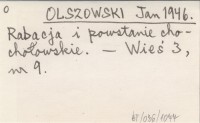 o OLSZOWSKI Jan 1946.
Rabacja i powstanie cho-
chołowskie. — Wieś 3,
nr 9.